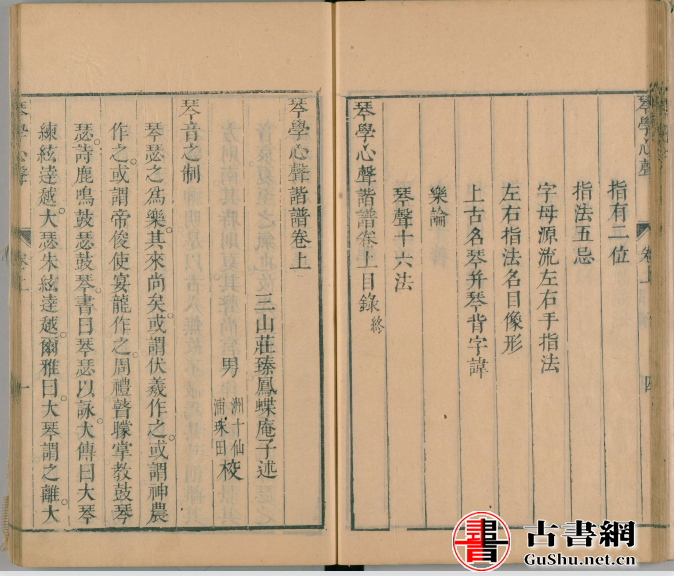 琴學心聲
卷上
四
指有二位
指法五忌
字母源流左右手指法
左右指法名目像形
上古名琴并琴背字諱
樂論
琴聲十六法
琴學心聲諧譜卷上目錄終
琴學心聲諧譜卷上
三山莊臻鳳蝶庵子述
男
洲十仙
浦珠田
校
琴音之制
琴瑟之爲樂其來尚矣或謂伏羲作之或謂神農
作之或謂帝俊使宴龍作之周禮瞽矇掌教鼓琴
瑟詩鹿鳴鼓瑟鼓琴書曰琴瑟以詠大傳曰大琴
練絃達越大瑟朱絃達越爾雅曰大琴謂之離大
琴學心聲
卷上
一
書
古書網
GuShu.net.cn